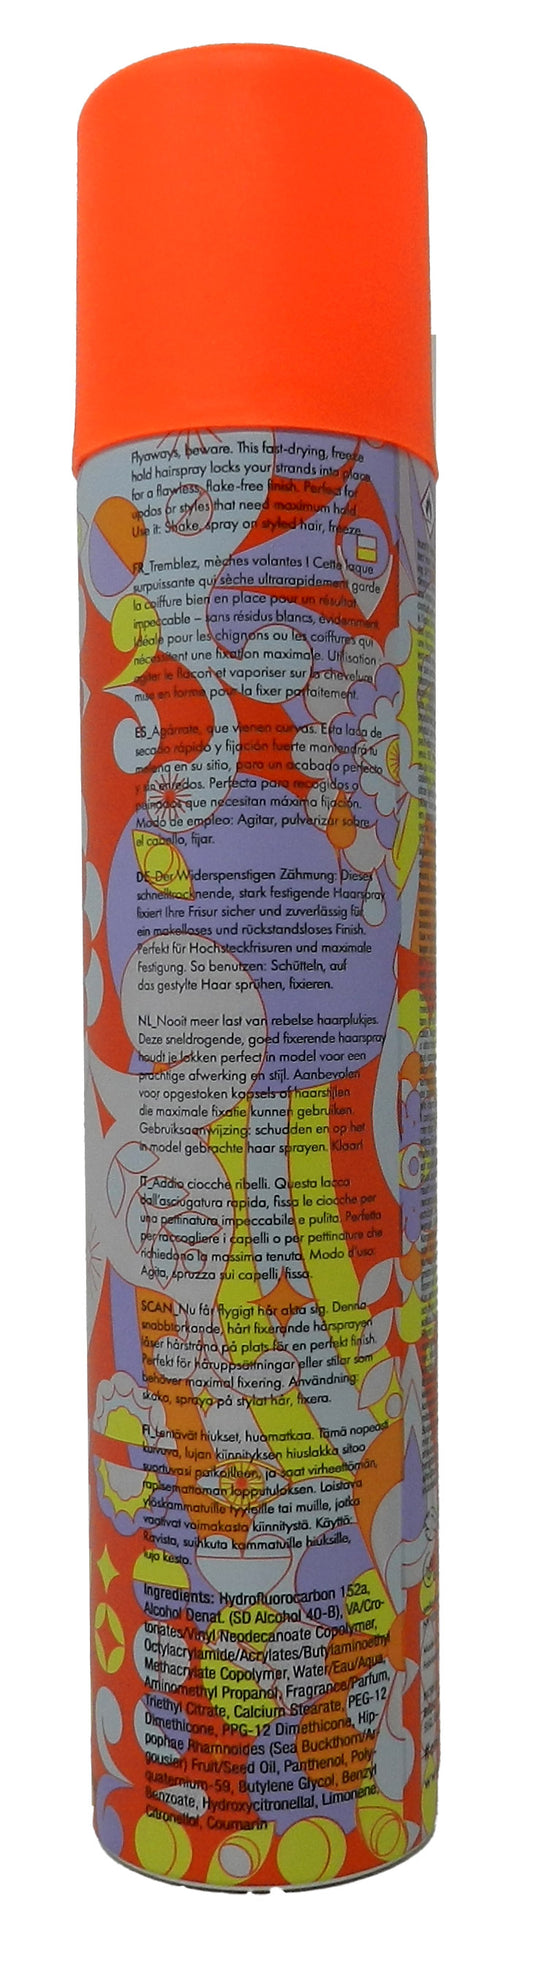 Flyaways, beware. This fast-drying, freeze
hold hairspray locks your strands into place
for a flawless, flake-free finish. Perfect for
updos or styles that need maximum hold.
Use it: Shake, spray on styled hair, freeze.
FR_Tremblez, mèches volantes ! Cette laque
surpuissante qui sèche ultrarapidement garde
la coiffure bien en place pour un résultat
impeccable – sans résidus blancs, évidemment.
Idéale pour les chignons ou les coiffures qui
nécessitent une fixation maximale. Utilisation :
agiter le flacon et vaporiser sur la chevelure
mise en forme pour la fixer parfaitement.
ES_Agárrate, que vienen curvas. Esta laca de
secado rápido y fijación fuerte mantendrá tu
melena en su sitio, para un acabado perfecto
y sin enredos. Perfecta para recogidos o
peinados que necesitan máxima fijación.
Modo de empleo: Agitar, pulverizar sobre
el cabello, fijar.
DE_Der Widerspenstigen Zähmung: Dieses
schnelltrocknende, stark festigende Haarspray
fixiert Ihre Frisur sicher und zuverlässig für
ein makelloses und rückstandsloses Finish.
Perfekt für Hochsteckfrisuren und maximale
Festigung. So benutzen: Schütteln, auf
das gestylte Haar sprühen, fixieren.
NL_Nooit meer last van rebelse haarplukjes.
Deze sneldrogende, goed fixerende haarspray
houdt je lokken perfect in model voor een
prachtige afwerking en stijl. Aanbevolen
voor opgestoken kapsels of haarstijlen
die maximale fixatie kunnen gebruiken.
Gebruiksaanwijzing: schudden en op het
in model gebrachte haar sprayen. Klaar!
IT_Addio ciocche ribelli. Questa lacca
dall'asciugatura rapida, fissa le ciocche per
una pettinatura impeccabile e pulita. Perfetta
per raccogliere i capelli o per pettinature che
richiedono la massima tenuta. Modo d'uso:
Agita, spruzza sui capelli, fissa.
SCAN_Nu får flygigt hår akta sig. Denna
snabbtorkande, hårt fixerande hårsprayen
låser hårstråna på plats för en perfekt finish.
Perfekt för håruppsättningar eller stilar som
behöver maximal fixering. Användning:
skaka, spraya på stylat hår, fixera.
FI_Lentävät hiukset, huomatkaa. Tämä nopeasti
kuivuva, lujan kiinnityksen hiuslakka sitoo
suortuvasi paikoilleen, ja saat virheettömän,
rapisemattoman lopputuloksen. Loistava
yläskammatuille tyyleille tai muille, jotka
vaativat voimakasta kiinnitystä. Käyttö:
Ravista, suihkuta kammatuille hiuksille,
luja kesto.
Ingredients: Hydrofluorocarbon 152a,
Alcohol Denat. (SD Alcohol 40-B), VA/Cro-
tonates/Vinyl Neodecanoate Copolymer,
Octylacrylamide/Acrylates/Butylaminoethyl
Methacrylate Copolymer, Water/Eau/Aqua,
Aminomethyl Propanol, Fragrance/Parfum,
Triethyl Citrate, Calcium Stearate, PEG-12
Dimethicone, PPG-12 Dimethicone, Hip-
pophae Rhamnoides (Sea Buckthorn/Ar-
gousier) Fruit/Seed Oil, Panthenol, Poly-
quaternium-59, Butylene Glycol, Benzyl
Benzoate, Hydroxycitronellal, Limonene,
Citronellol, Coumarin